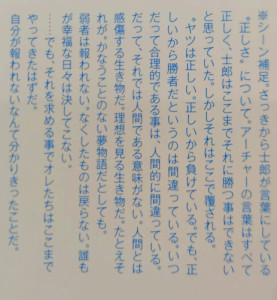 ※シーン補足。さっきから士郎が言葉にしている
〝正しさ〟について。アーチャーの言葉はすべて
正しく、士郎はここまでそれに勝つ事はできない
と思っていた。しかしそれはここで覆される。
〝ヤツは正しい。正しいから負けている。でも、正
しいから勝者だというのは間違っている。いつ
だって合理的である事は、人間的に間違っている。
だって、それでは人間である意味がない。人間とは
感傷する生き物だ。理想を見る生き物だ。たとえそ
れが、かなうことのない夢物語だとしても。
弱者は報われない。なくしたものは戻らない。誰も
が幸福な日々は決してこない。
……でも、それを求める事でオレたちはここまで
やってきたはずだ。
自分が報われないなんて分かりきったことだ。